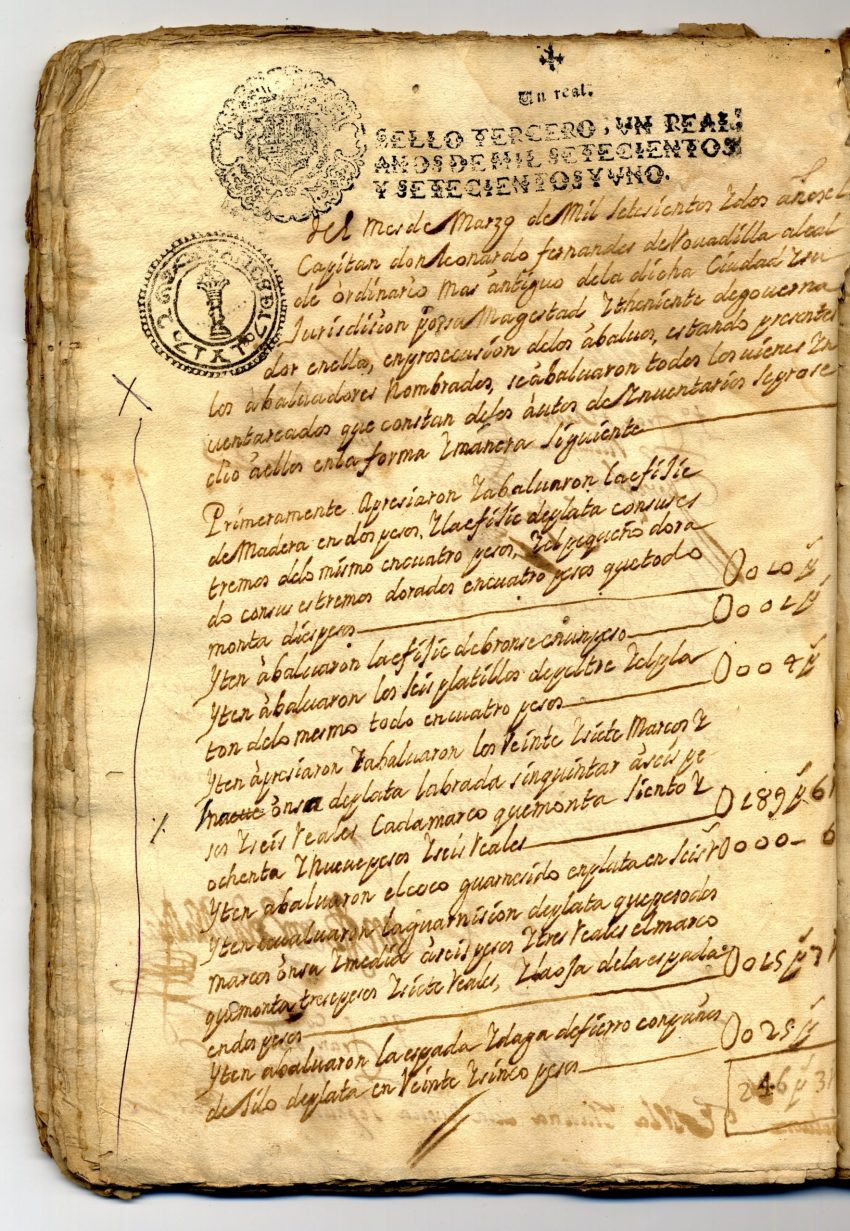 Un real.
SELLO TERCERO, UN REAL,
AÑOS DE MIL SETECIENTOS
Y SETECIENTOS Y UNO.
del mes de Marzo de Mil setesientos Y dos años el
Capitan don leonardo fernandes de Vouadilla alcal
de ordinario mas antiguo de la dicha Ciudad Y su
Jurisdision por su Magestad Y theniente de gouerna
dor en ella, en prosecusion de los abaluos, estando presentes
los abaluadores Nombrados, se abaluaron todos los uienes In
uentareados que constan de los autos de Inuentarios se prose
dio a ellos en la forma Y manera siguiente
Primeramente Apresiaron Y abaluaron la efijie
de Madera en dos pesos, Y la efijie de plata con sus es
tremos de lo mismo en cuatro pesos, Y el pequeño dora
do con sus estremos dorados en cuatro pesos que todo
monta dies pesos 0010 p
Yten abaluaron la efijie de bronse en un peso 0001 p
Yten abaluaron los seis platillos de peltre Y el pla
ton de lo mesmo todo en cuatro pesos 0004 p
Yten apresiaron Y abaluaron los Veinte Y siete Marcos Y
onsa de plata labrada sin quintar a seis pe
sos Y seis Reales Cada marco que monta siento Y
ochenta Y nueue pesos Y seis Reales 0189 p 6
Yten abaluaron el coco guarnesido en plata en seis r 000- 6
Yten eualuaron la guarnision de plata que peso dos
marcos onsa Y media a seis pesos Y tres Reales el marco
que monta trese pesos Y siete Reales, Y la oja de la espada
en dos pesos 0015 p 7
Yten abaluaron la espada Y daga de fierro con puños
de Hilo de plata en Veinte Y sinco pesos 0025 p
246 p 3